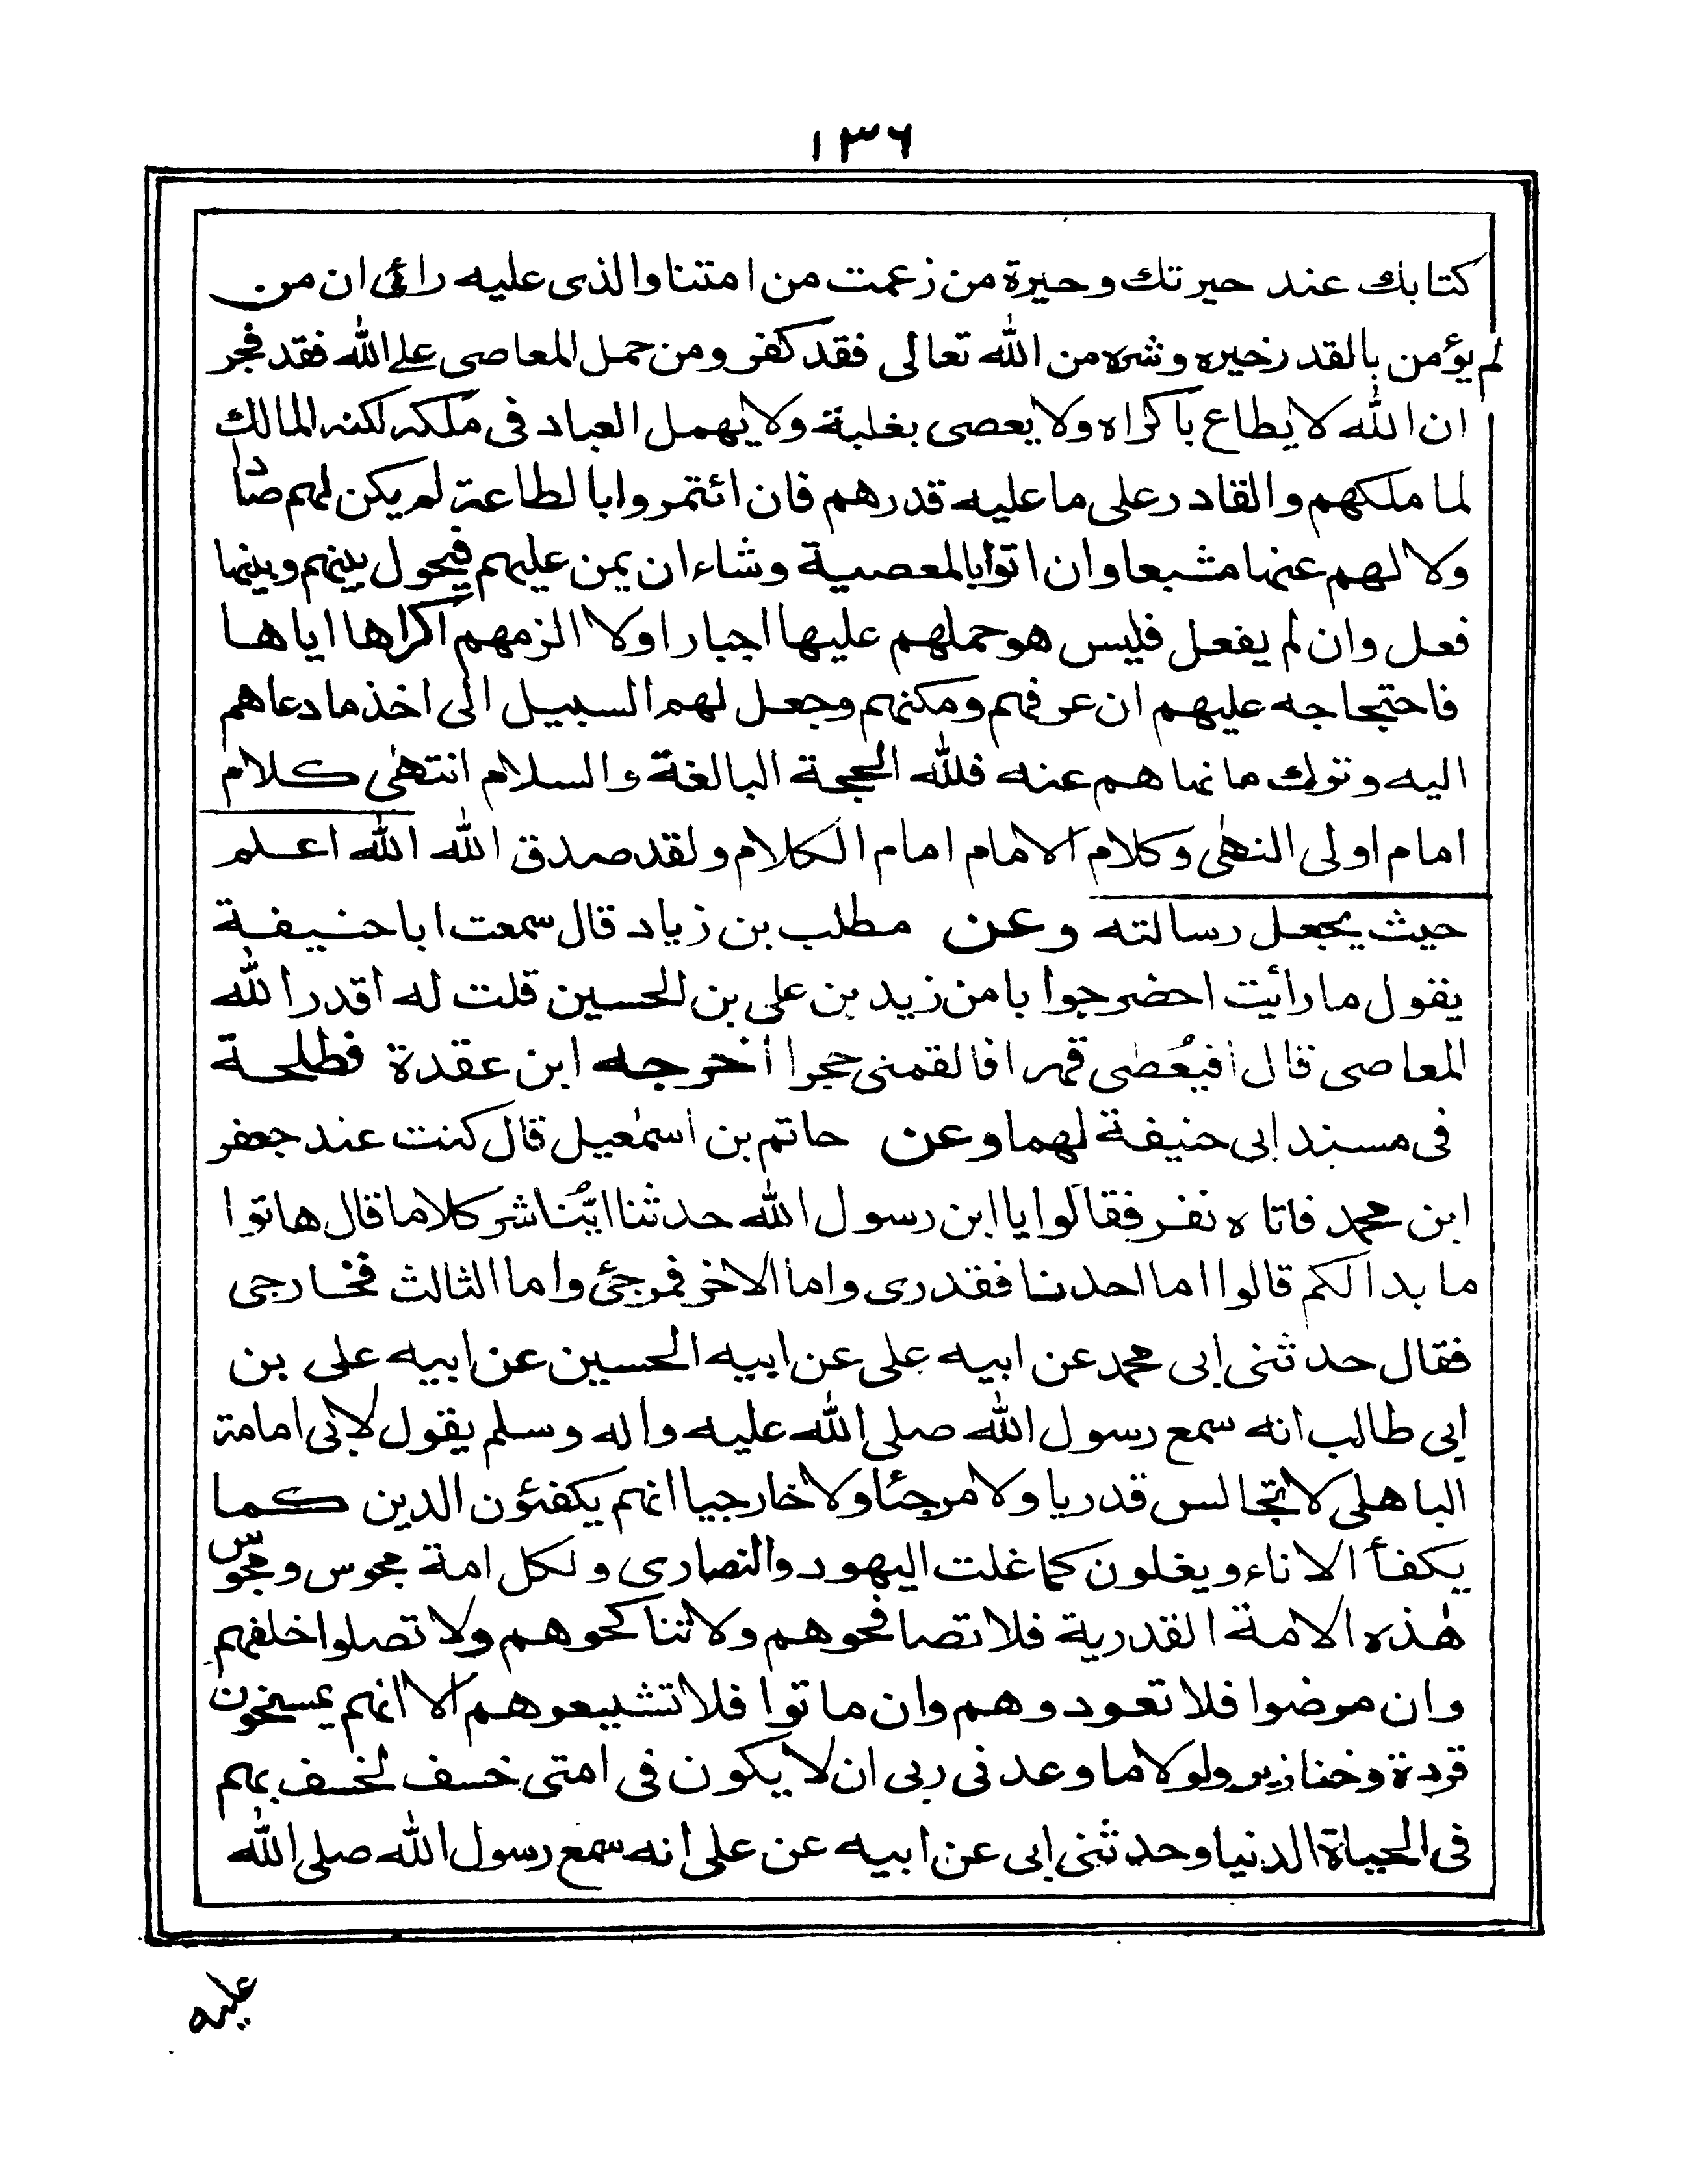 ١٣٦
كتابك عند حيرتك وحيرة من زعمت من امتنا والذى عليه رائى ان من
لم يؤمن بالقدر خيره وشره من الله تعالى فقد كفر ومن حمل المعاصى على الله فقد فجر
ان الله لا يطاع باكراه ولا يعصى بغلبة ولا يهمل العباد فى ملكه لكنه المالك
لما ملكهم والقادر على ما عليه قدرهم فان ائتمروا بالطاعة لم يكن لهم صادا
ولا لهم عنها مشبعا وان اتوا بالمعصية وشاء ان يمن عليهم فيحول بينهم وبينها
فعل وان لم يفعل فليس هو حملهم عليها اجبارا ولا الزمهم اكراها اياها
فاحتجاجه عليهم ان عرفهم ومكنهم وجعل لهم السبيل الى اخذ ما دعاهم
اليه وترك ما نهاهم عنه فلله الحجة البالغة والسلام انتهى كلام
امام اولى النهى وكلام الامام امام الكلام ولقد صدق الله الله اعلم
حيث يجعل رسالته وعن مطلب بن زياد قال سمعت ابا حنيفة
يقول ما رأيت احضر جوابا من زيد بن على بن الحسين قلت له اقدر الله
المعاصى قال أفيُعصٰى قهرا فالقمنى حجرا أخرجه ابن عقدة فطلحة
فى مسند ابى حنيفة لهما وعن حاتم بن اسمٰعيل قال كنت عند جعفر
ابن محمد فاتاه نفر فقالوا يا ابن رسول الله حدثنا ايُّنا شر كلاما قال هاتوا
ما بدا لكم قالوا اما احدنا فقدرى واما الاخر فمرجئ واما الثالث فخارجى
فقال حدثنى ابى محمد عن ابيه على عن ابيه الحسين عن ابيه على بن
ابى طالب انه سمع رسول الله صلى الله عليه واله وسلم يقول لابى امامة
الباهلى لا تجالس قدريا ولا مرجئا ولا خارجيا انهم يكفئون الدين كما
يكفأ الاناء ويغلون كما غلت اليهود والنصارى ولكل امة مجوس ومجوس
هٰذه الامة القدرية فلا تصافحوهم ولا تناكحوهم ولا تصلوا خلفهم
وان مرضوا فلا تعودوهم وان ماتوا فلا تشيعوهم الا انهم يمسخون
قردة وخنازير ولولا ما وعدنى ربى ان لا يكون فى امتى خسف لخسف بهم
فى الحياة الدنيا وحدثنى ابى عن ابيه عن على انه سمع رسول الله صلى الله
عليه